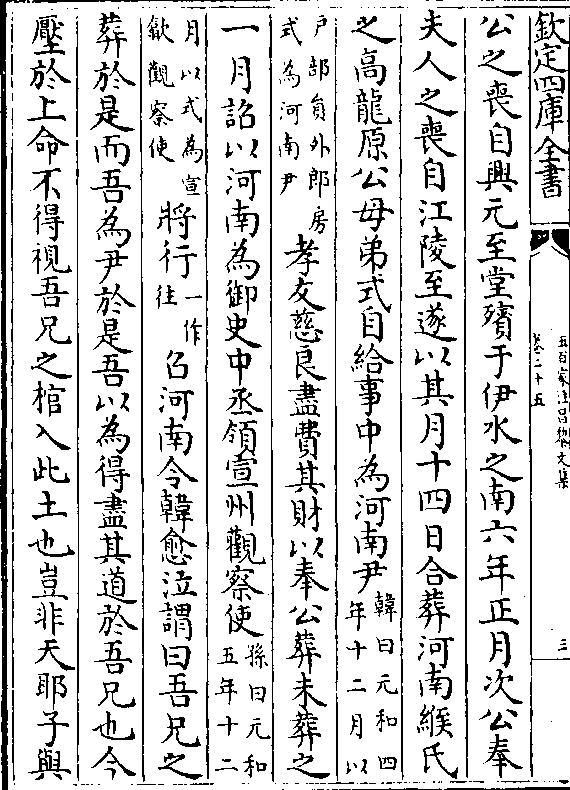 欽定四庫全書
五百家注昌黎文集
卷二十五
三
公之喪自興元至堂殯于伊水之南六年正月次公奉
夫人之喪自江陵至遂以其月十四日合葬河南緱氏
之高龍原公母弟式自給事中為河南尹韓曰元和四年十二月以
户部員外郎房式為河南尹孝友慈良盡費其財以奉公葬未葬之
一月詔以河南為御史中丞領宣州觀察使孫曰元和五年十二
月以式為宣歙觀察使將行一作往召河南令韓愈泣謂曰吾兄之
葬於是而吾為尹於是吾以為得盡其道於吾兄也今
壓於上命不得視吾兄之棺入此土也豈非天耶子與